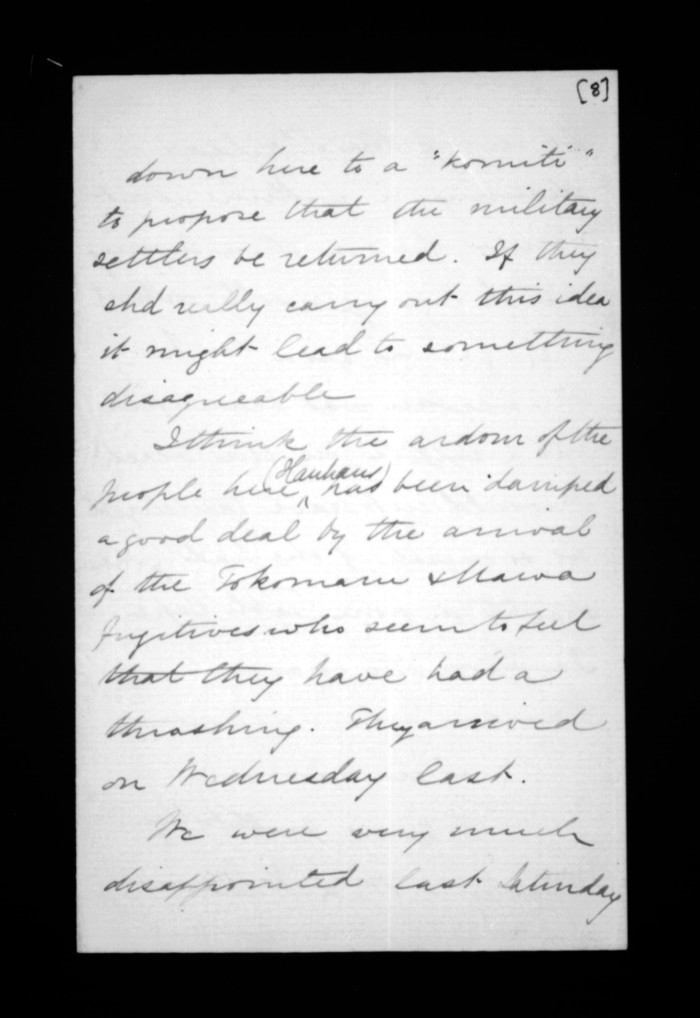 [8]
down here to a "komiti"
to propose that the military
settlers be returned. If they
shd really carry out this idea
it might lead to something
disagreeable
I think the ardour of the
people here (Hauhaus) has been damped
a good deal by the arrival
of the Tokomaru & Mawa
fugitives who seem to feel
that they have had a
thrashing. They arrived
on Wednesday last.
We were very much
disappointed last Saturday